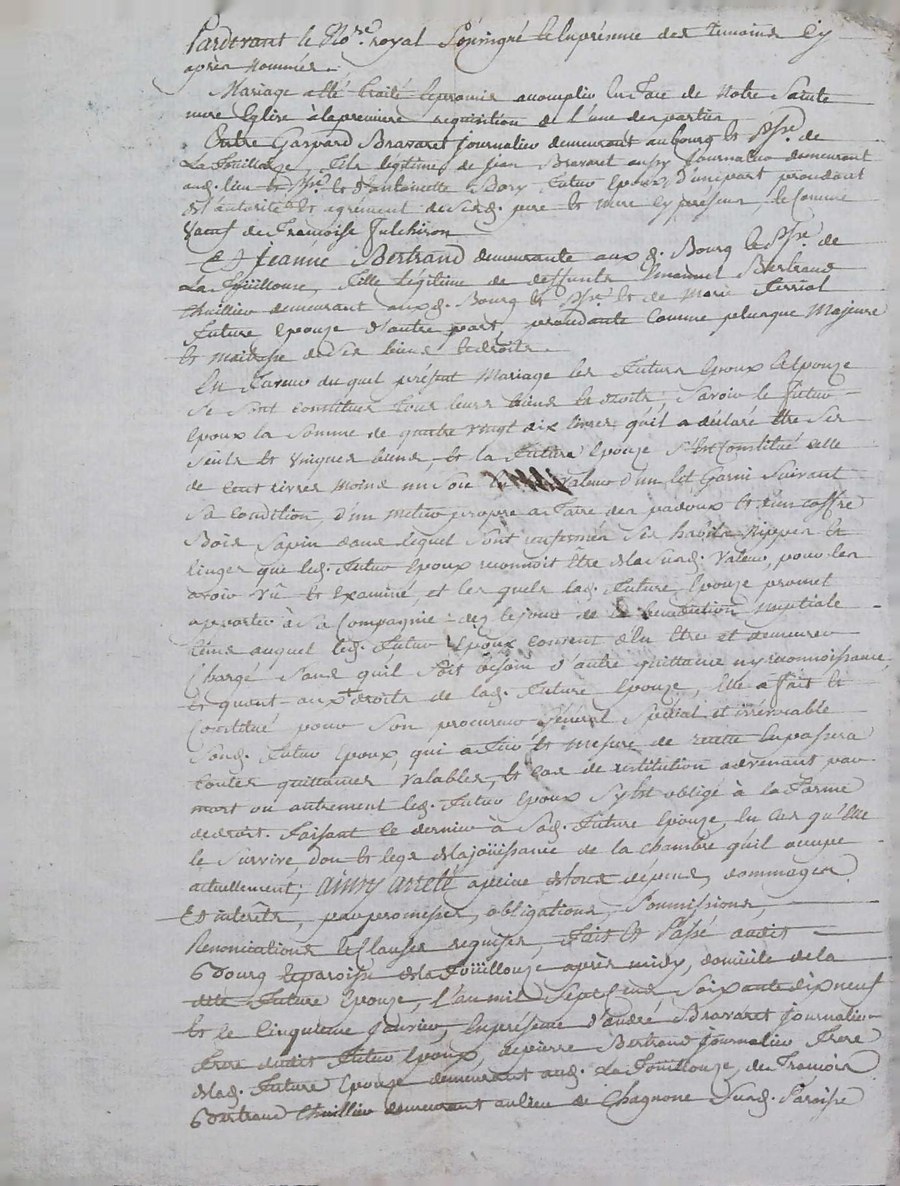 Pardevant le No.re royal Soussigné et en presence des temoins Cy
après Nommés.
Mariage a été traité et promis accomplir en face de Notre Sainte
mere Eglise à la premiere requisition de l'une des parties
Entre Gaspard Bravaret Journalier demeurant au bourg et P.sse de
La Foüillouze, fils legitime de Jean Bravaret aussy Journalier demeurant
aud. lieu et P.sse et d'Antoinette Bory futur Epoux, d'une part procedant
de l'autorité et agrément de sesd. pere et mere cy présens, et Comme
Veuf de Françoise Fulchiron
Et Jeanne Bertrand demeurante aux d. Bourg et P.sse de
La Foüillouze, fille légitime de deffunts Bertrand
thuillier demeurant aux d. Bourg et P.sse et de Marie Terriol
future Epouze d'autre part, procedante Comme plusque Majeure
et maitresse de ses biens et droits.
En faveur du quel présent Mariage les futurs Epoux et Epouze
se sont constitués tous leurs biens et droits; Savoir le futur
Epoux la Somme de quatre vingt dix livres qu'il a déclaré être ses
seuls et uniques biens, et la future Epouze s'est Constitué celle
de cent livres moins un Sol valeur d'un lit Garni Suivant
Sa condition, d'un metier propre a faire des padoux et d'un coffre
Bois Sapin dans lequel sont enfermés ses habits Nippes et
linges que led. futur Epoux reconnoit être de lasusd. Valeur, pour les
avoir vû et Examiné, et les quels lad. future Epouze promet
apporter à sa Compagnie dez le jour de la benediction nuptiale
tems auquel led. futur Epoux consent d'en être et demeurer
Chargé Sans qu'il soit besoin d'autre quittance ny reconnoissance,
et quant aux droits de lad. future Epouze, Elle a fait et
Constitué pour son procureur Général Spécial et irrévocable
Sond. futur Epoux, qui a fur et mesure de recette en passera
toutes quittances valables, et cas de restitution advenant par
mort ou autrement led. futur Epoux s'y est obligé à la forme
de droit. Faisant ce dernier à Sad. future Epouze En cas qu'Elle
le Survive, don et legs de la joüissance de la chambre qu'il occupe
actuellement; ainsy arreté a peine de tous dépens, dommages
Et interêts, par promesses, obligations, Soumissions,
Renonciations et Clauses requises, Fait et Passé audit
Bourg et paroisse de la Foüillouze après midy, domicile de la
dite future Epouze, l'an mil Sept Cent Soixante dix neuf
et le Cinquieme Janvier, En présence d'André Bravaret Journalier
frere dudit futur Epoux, de pierre Bertrand Journalier frere
de lad. future Epouze demeurant aud. La Foüillouze, de François
Bertrand thuillier demeurant au lieu de Chagnone Susd. Paroisse